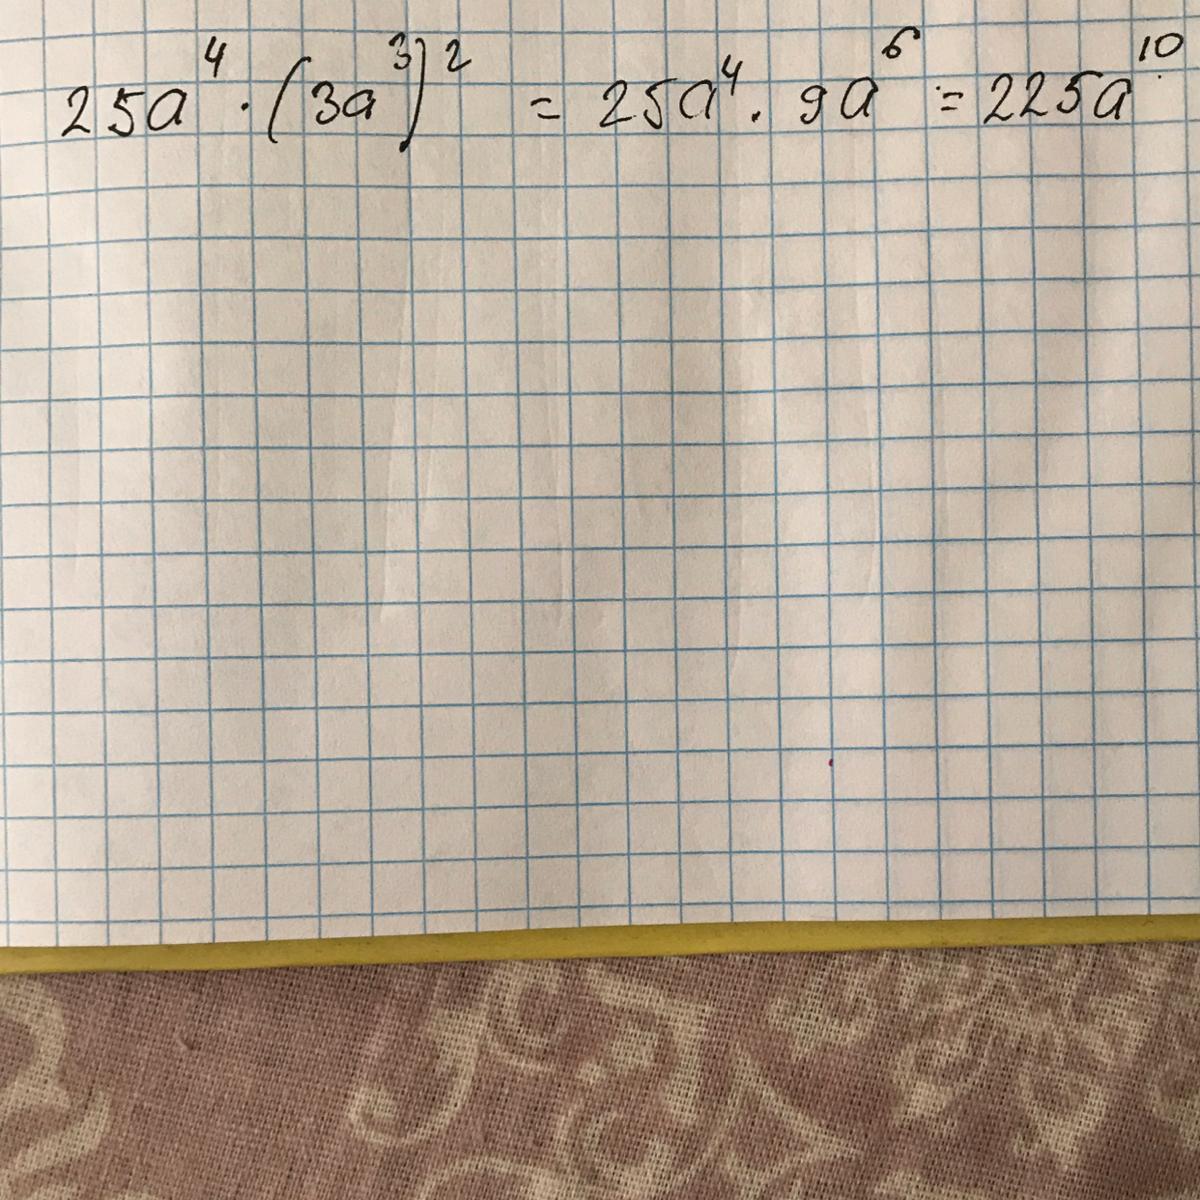 25a⁴ · (3a³)² = 25a⁴ · 9a⁶ = 225a¹⁰